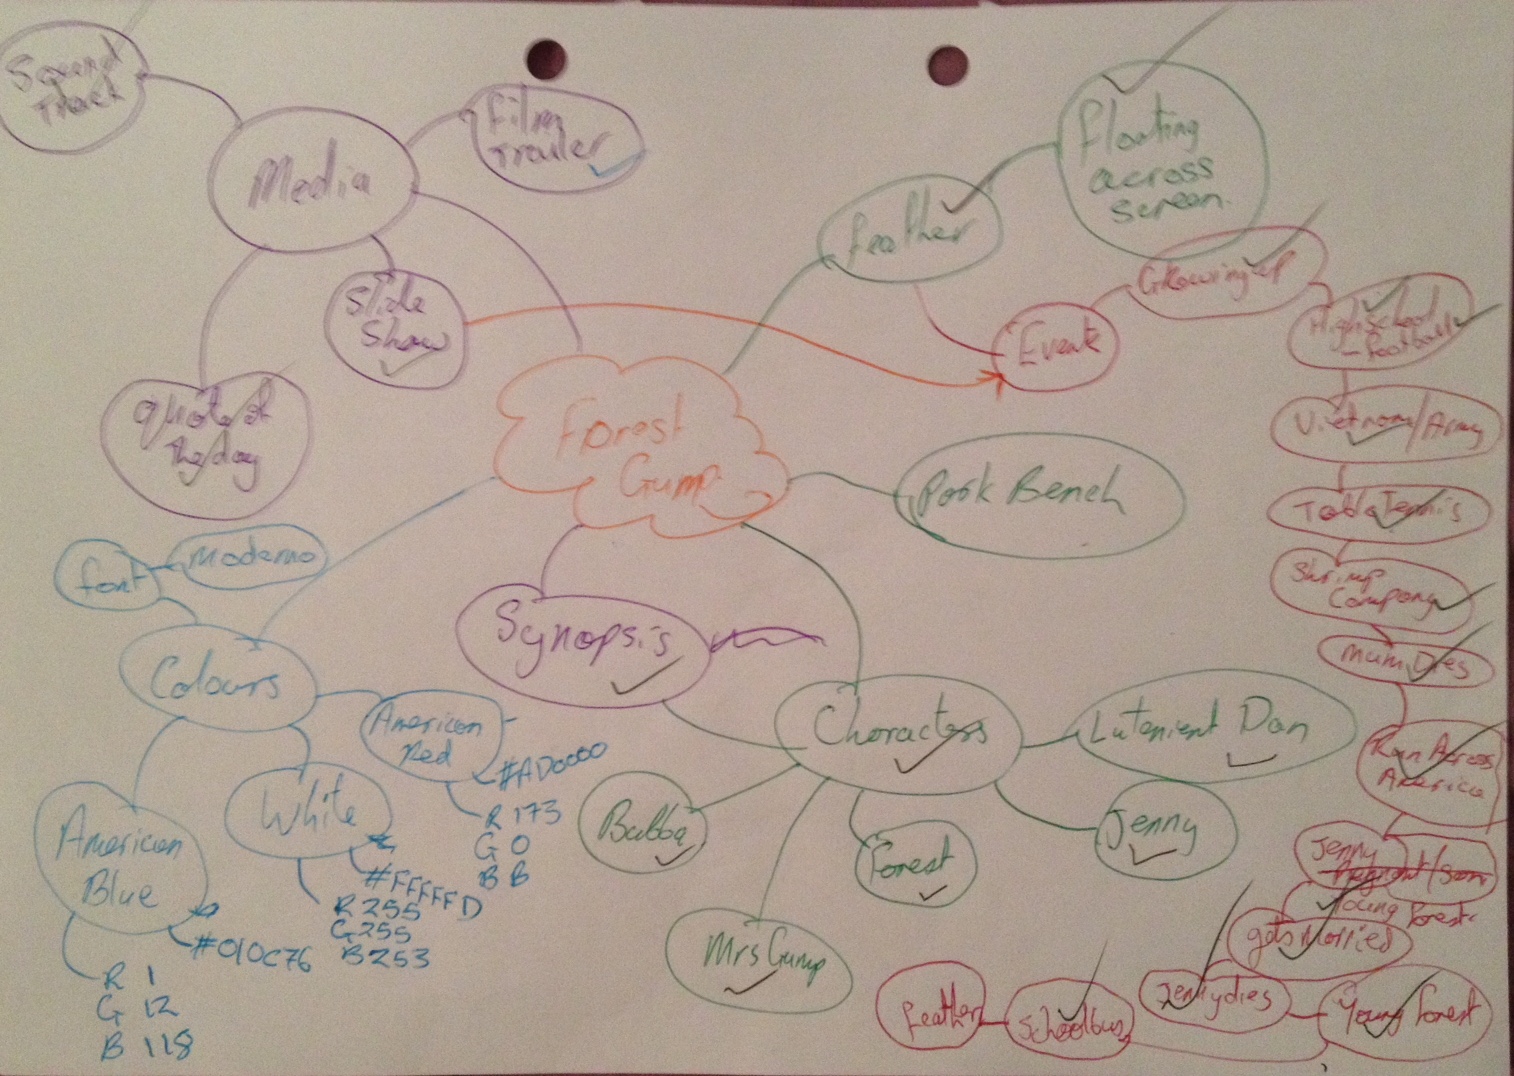 Sound
Track
Media
Film
Trailer
Slide
Show
Quote of
The day
Feather
Floating
across
screen.
Events
Growing up
High School
- Football
Vietnam/Army
Table Tennis
Shrimp
Company
Mum Dies
Run Across
America
Jenny
Pregnant/Soon
Young Forest
gets Married
Jenny dies
Young Forest
School bus
Feather
Forest
Gump
Park Bench
Synopsis
Characters
Lutenient Dan
Jenny
Forest
Bubba
Mrs Gump
Font
Moderno
Colours
American
Red
#AD0000
R 173
G 0
B B
White
#FFFFFD
R 255
G 255
B 253
American
Blue
#010C76
R 1
G 12
B 118